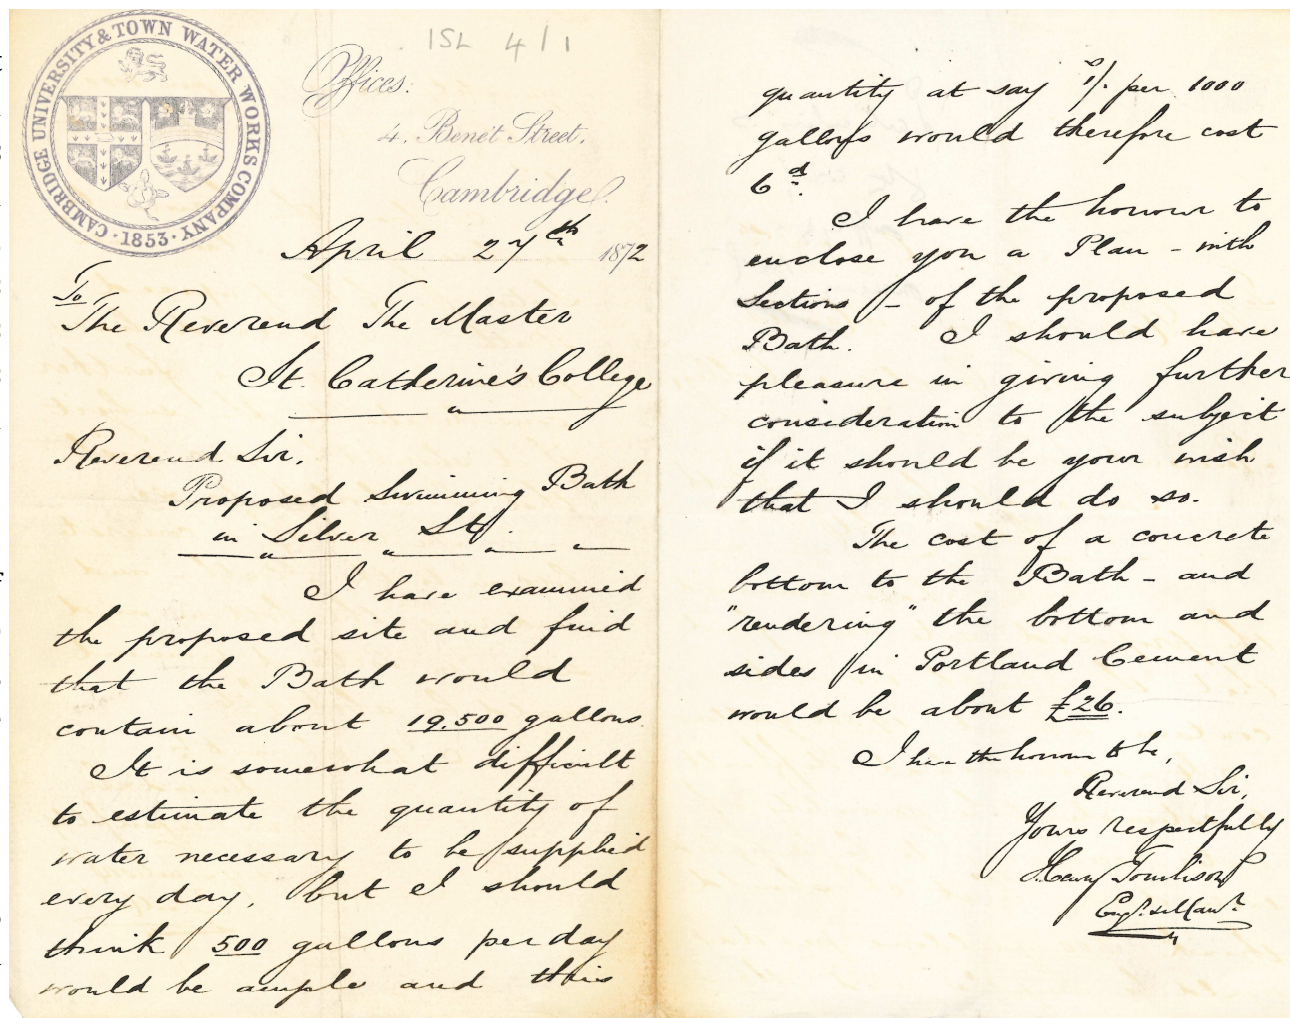 ISL 4/1
CAMBRIDGE UNIVERSITY & TOWN WATER WORKS COMPANY
· 1853 ·
Offices:
4. Benet Street.
Cambridge.
April 27th 1872
To
The Reverend The Master
St. Catherine's College
Reverend Sir.
Proposed Swimming Bath
in Silver St.
I have examined
the proposed site and find
that the Bath would
contain about 19.500 gallons.
It is somewhat difficult
to estimate the quantity of
water necessary to be supplied
every day, but I should
think 500 gallons per day
would be ample and this
quantity at say 1/. per 1000
gallons would therefore cost
6d.
I have the honour to
enclose you a Plan – with
Sections – of the proposed
Bath. I should have
pleasure in giving further
consideration to the subject
if it should be your wish
that I should do so.
The cost of a concrete
bottom to the Bath – and
"rendering" the bottom and
sides in Portland Cement
would be about £26.
I have the honour to be,
Reverend Sir,
Yours respectfully
Henry Tomlison